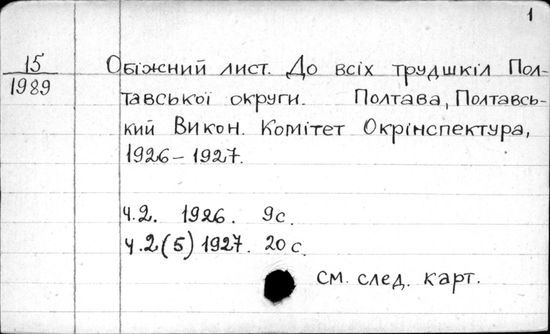 1
15
1989
Обіжний лист. До всіх трудшкіл Пол-
тавської округи. Полтава, Полтавсь-
кий Викон. Комітет Окрінспектура,
1926-1927.
ч.2. 1926. 9с.
ч.2(5) 1927. 20с.
см. след. карт.